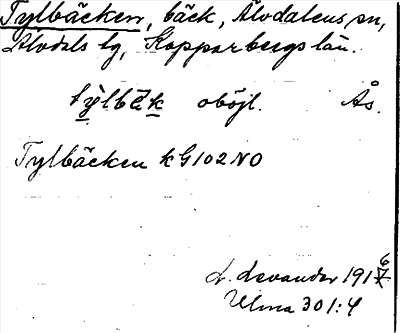 Tylbäcken, bäck, Älvdalens sn,
Älvdals tg, Kopparbergs län.
týlbä̀k oböjl. Ås.
Tylbäcken kG 102 NO
L. Levander 1916
Ulma 301:4